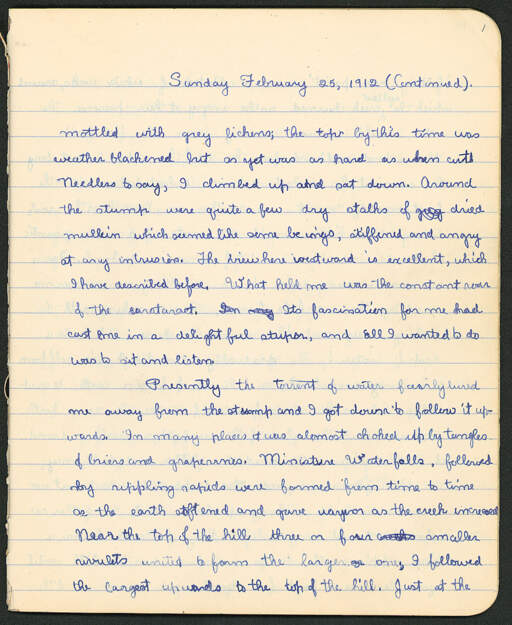 1
Sunday February 25, 1912 (Continued).
mottled with grey lichens; the top by this time was
weather blackened but as yet was as hard as when cut.
Needless to say, I climbed up and sat down. Around
the stump were quite a few dry stalks of dried
mullein which seemed like some beings, stiffened and angry
at any intrusion. The view here westward is excellent, which
I have described before. What held me was the constant roar
of the cararact. Its fascination for me had
cast me in a delightful stupor, and all I wanted to do
was to sit and listen.
Presently the torrent of water fairly lured
me away from the stump and I got down to follow it up-
wards. In many places it was almost choked up by tangles
of briers and grapevines. Miniature Waterfalls, followed
by rippling rapids were formed from time to time
as the earth softened and gave way as the creek increased
Near the top of the hill three or four smaller
rivulets united to form the larger one, I followed
the largest upwards to the top of the hill. Just at the